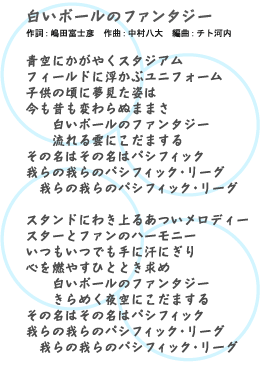 白いボールのファンタジー
作詞：嶋田富士彦　作曲：中村八大　編曲：チト河内
青空にかがやくスタジアム
フィールドに浮かぶユニフォーム
子供の頃に夢見た姿は
今も昔も変わらぬままさ
白いボールのファンタジー
流れる雲にこだまする
その名はその名はパシフィック
我らの我らのパシフィック・リーグ
我らの我らのパシフィック・リーグ
スタンドにわき上るあついメロディー
スターとファンのハーモニー
いつもいつでも手に汗にぎり
心を燃やすひととき求め
白いボールのファンタジー
きらめく夜空にこだまする
その名はその名はパシフィック
我らの我らのパシフィック・リーグ
我らの我らのパシフィック・リーグ